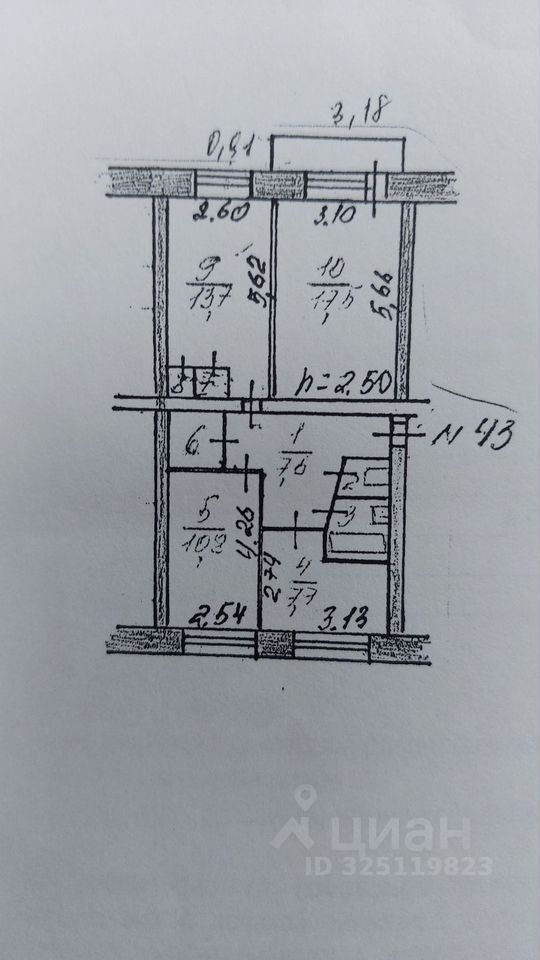 3,18
0,91
2.60
3.10
9
13,7
5,62
10
17,5
5,66
8
7
h=2.50
6
1
7,6
2
N 43
5
10,8
4.26
3
2.74
4
7,7
2.54
3.13
циан
ID 325119823